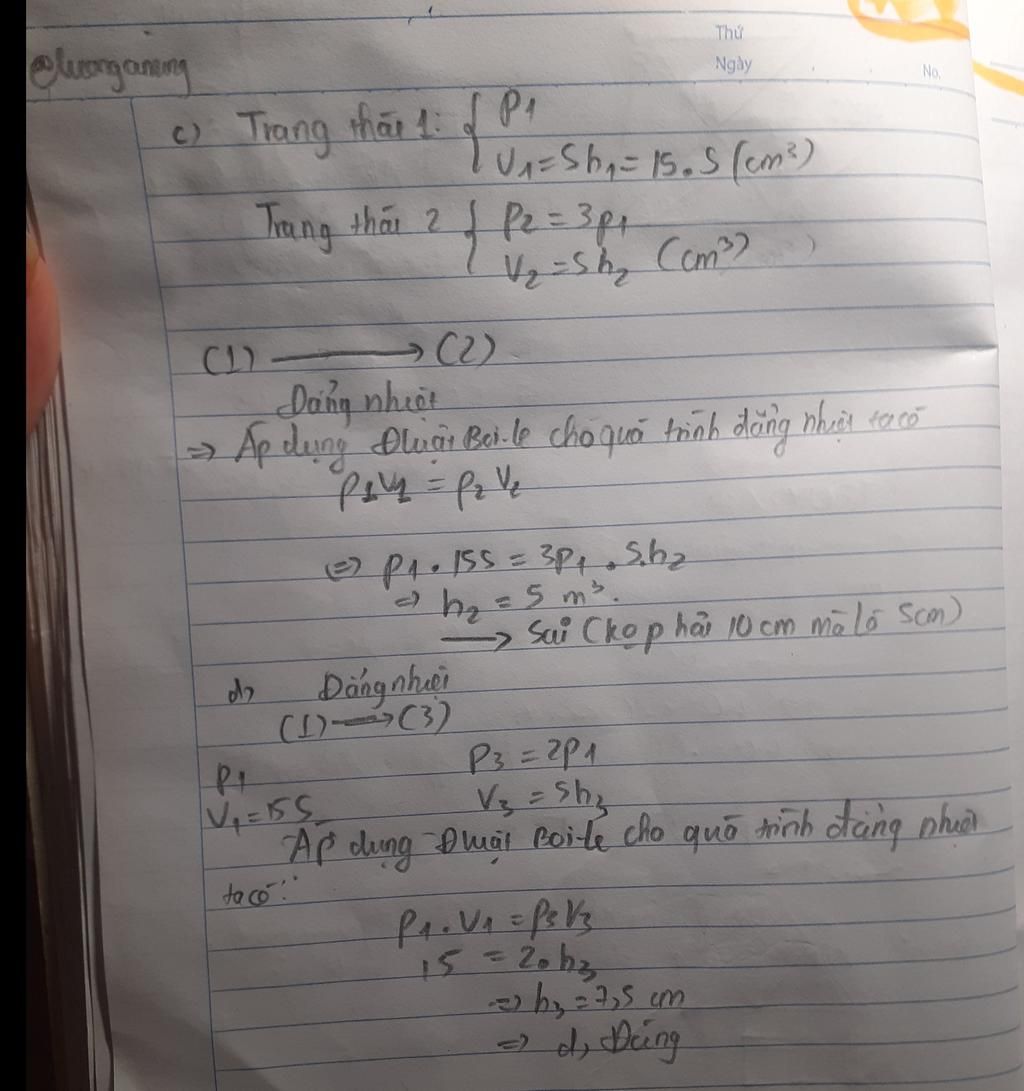 Thứ
Ngày
No.
c) Trạng thái 1: { P1
V1 = Sh1 = 15.S (cm³)
Trạng thái 2 { P2 = 3p1
V2 = Sh2 (cm³)
(1) ⟶ (2)
Đẳng nhiệt
⇒ Áp dụng Đluật Boi-lơ cho quá trình đẳng nhiệt ta có
P1V1 = P2V2
⇔ P1.15S = 3P1.S.h2
⇒ h2 = 5 m³.
⟶ Sai (ko phải 10 cm mà là 5cm)
d, Đẳng nhiệt
(1) ⟶ (3)
P1 P3 = 2P1
V1 = 15S V3 = Sh3
Áp dụng Đluật Boi-lơ cho quá trình đẳng nhiệt
ta có:
P1.V1 = P3V3
15 = 2.h3
⇒ h3 = 7,5 cm
⇒ d, Đúng